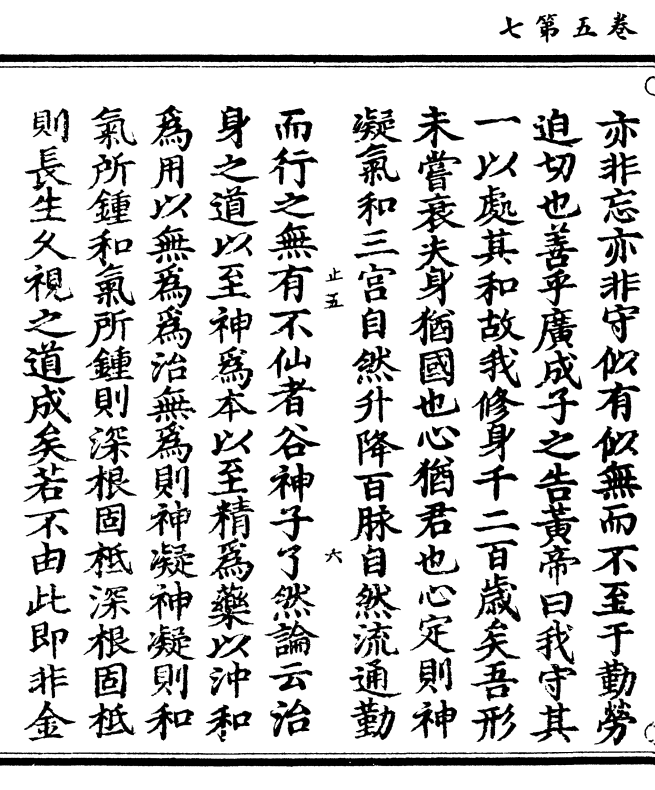 卷五第七
亦非忘亦非守似有似無而不至于勤勞
迫切也善乎廣成子之告黃帝曰我守其
一以處其和故我修身千二百歲矣吾形
未嘗衰夫身猶國也心猶君也心定則神
凝氣和三宮自然升降百脉自然流通勤
止五 六
而行之無有不仙者谷神子了然論云治
身之道以至神爲本以至精爲藥以沖和
爲用以無爲爲治無爲則神凝神凝則和
氣所鍾和氣所鍾則深根固柢深根固柢
則長生久視之道成矣若不由此即非金